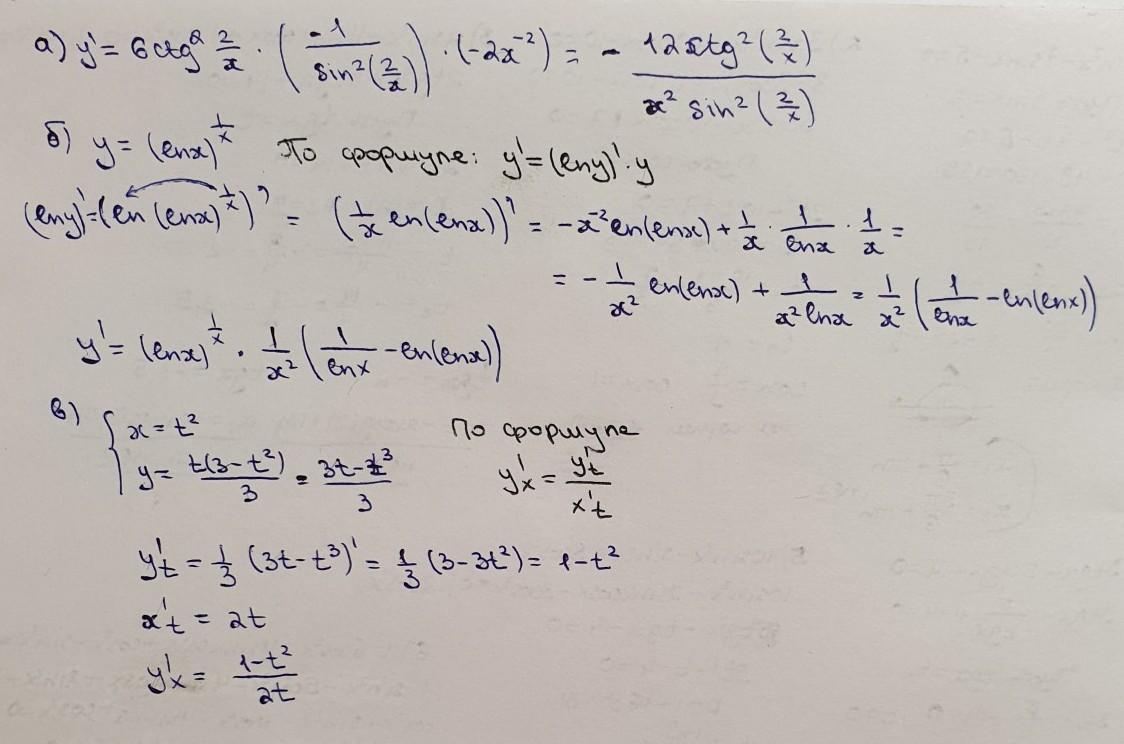 а) y' = 6ctg² 2/x · (-1/sin²(2/x)) · (-2x⁻²) = - 12ctg²(2/x)/(x² sin²(2/x))
б) y = (lnx)^(1/x) По формуле: y' = (lny)'·y
(lny)' = (ln (lnx)^(1/x))' = (1/x ln(lnx))' = -x⁻²ln(lnx) + 1/x · 1/lnx · 1/x =
= - 1/x² ln(lnx) + 1/(x² lnx) = 1/x² (1/lnx - ln(lnx))
y' = (lnx)^(1/x) · 1/x² (1/lnx - ln(lnx))
в) { x = t²
y = t(3-t²)/3 = (3t-t³)/3
По формуле
y'x = y't/x't
y't = 1/3 (3t-t³)' = 1/3 (3-3t²) = 1-t²
x't = 2t
y'x = (1-t²)/2t